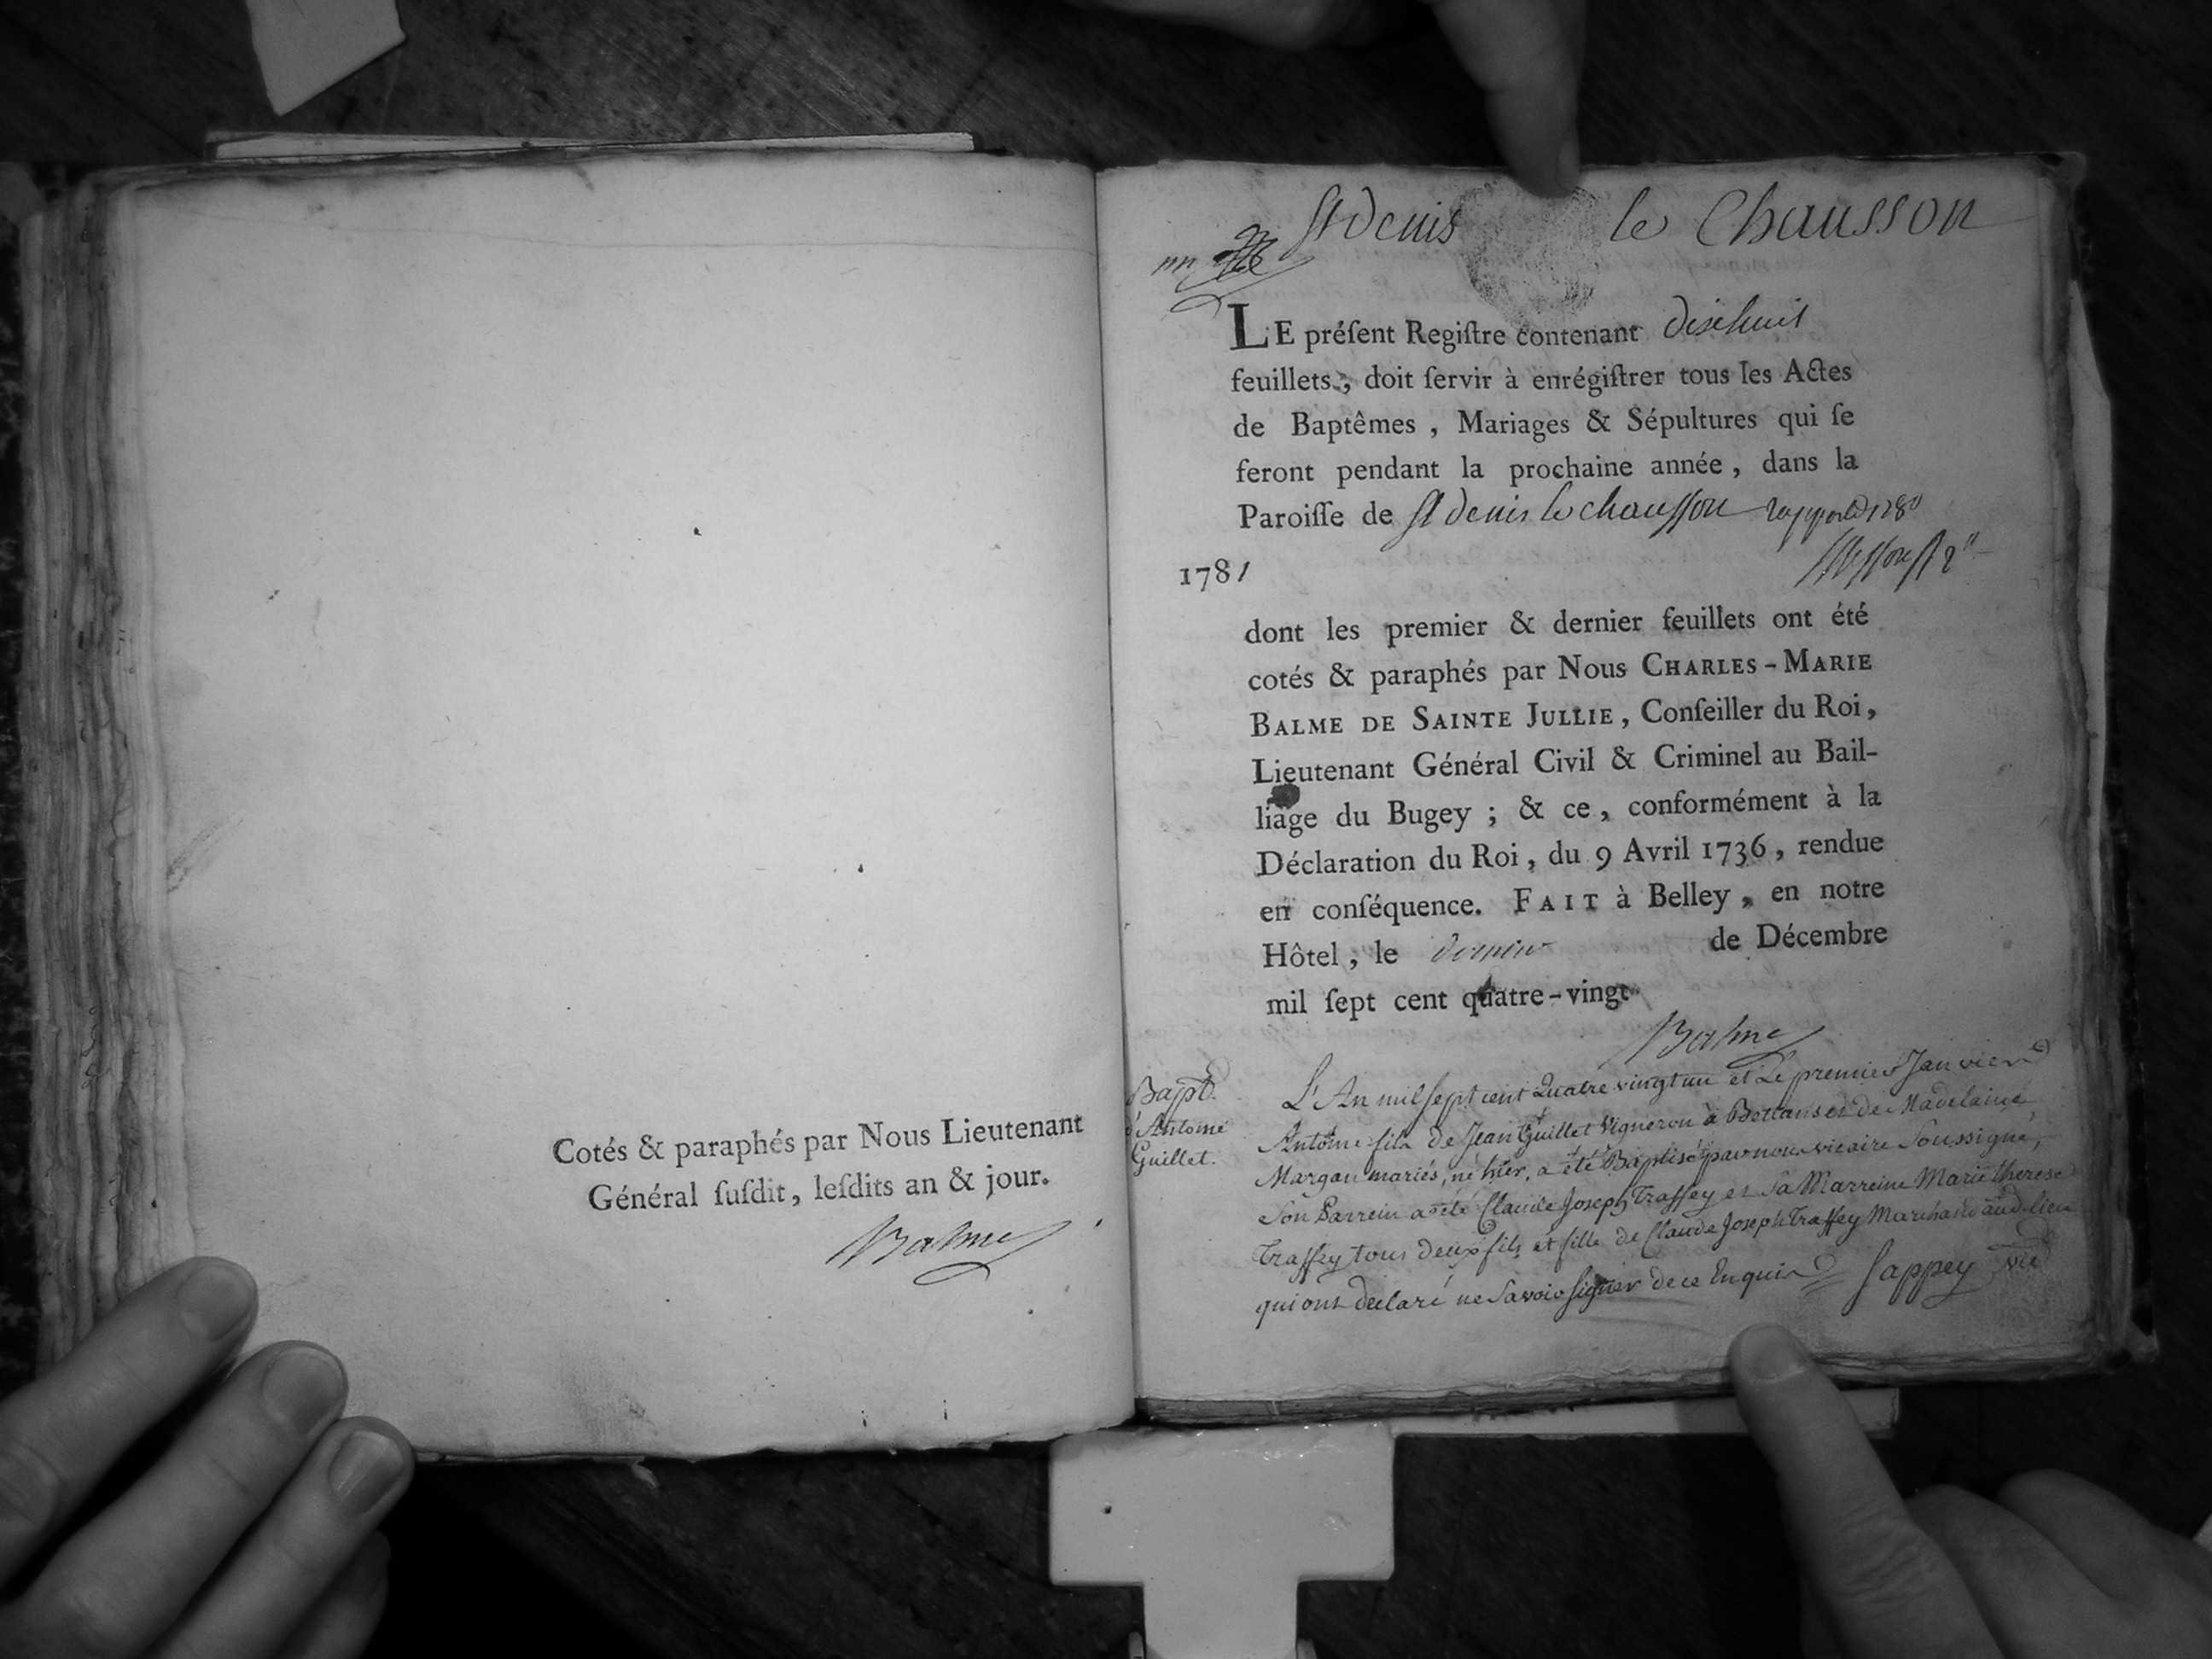 Cotés & paraphés par Nous Lieutenant
Général ſuſdit, leſdits an & jour.
Balme
St Denis le Chausson
LE préſent Regiſtre contenant dixhuit
feuillets, doit ſervir à enrégiſtrer tous les Actes
de Baptêmes, Mariages & Sépultures qui ſe
feront pendant la prochaine année, dans la
Paroiſſe de St denis le chausson
1781
dont les premier & dernier feuillets ont été
cotés & paraphés par Nous CHARLES-MARIE
BALME DE SAINTE JULLIE, Conſeiller du Roi,
Lieutenant Général Civil & Criminel au Bail-
liage du Bugey ; & ce, conformément à la
Déclaration du Roi, du 9 Avril 1736, rendue
en conſéquence. FAIT à Belley, en notre
Hôtel, le dernier de Décembre
mil ſept cent quatre-vingt
Balme
Bapt.
d'Antoine
Guillet.
L'An mil sept cent Quatre vingt un et Le premier Janvier
Antoine fils de Jean Guillet Vigneron à Bettans et de Madelaine
Margan mariés, né hier, a été Baptisé par nous vicaire Soussigné,
Son Parrein a été Claude Joseph Traffey et Sa Marreine Marie therese
Traffey tous deux fils et fille de Claude Joseph Traffey Marchand aud. lieu
qui ont declaré ne Savoir signer de ce Enquis Sappey vic